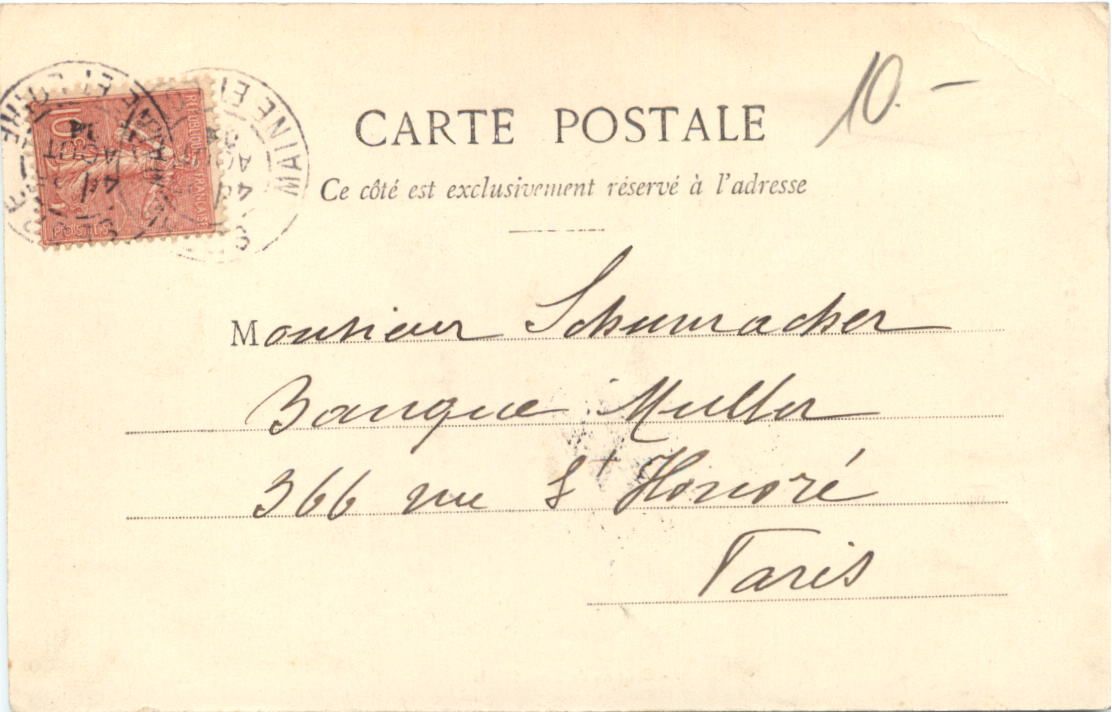 10.-
CARTE POSTALE
Ce côté est exclusivement réservé à l'adresse
Monsieur Schumacher
Banque Muller
366 rue St Honoré
Paris
10
RÉPUBLIQUE FRANÇAISE
POSTES
MAINE ET
AOUT